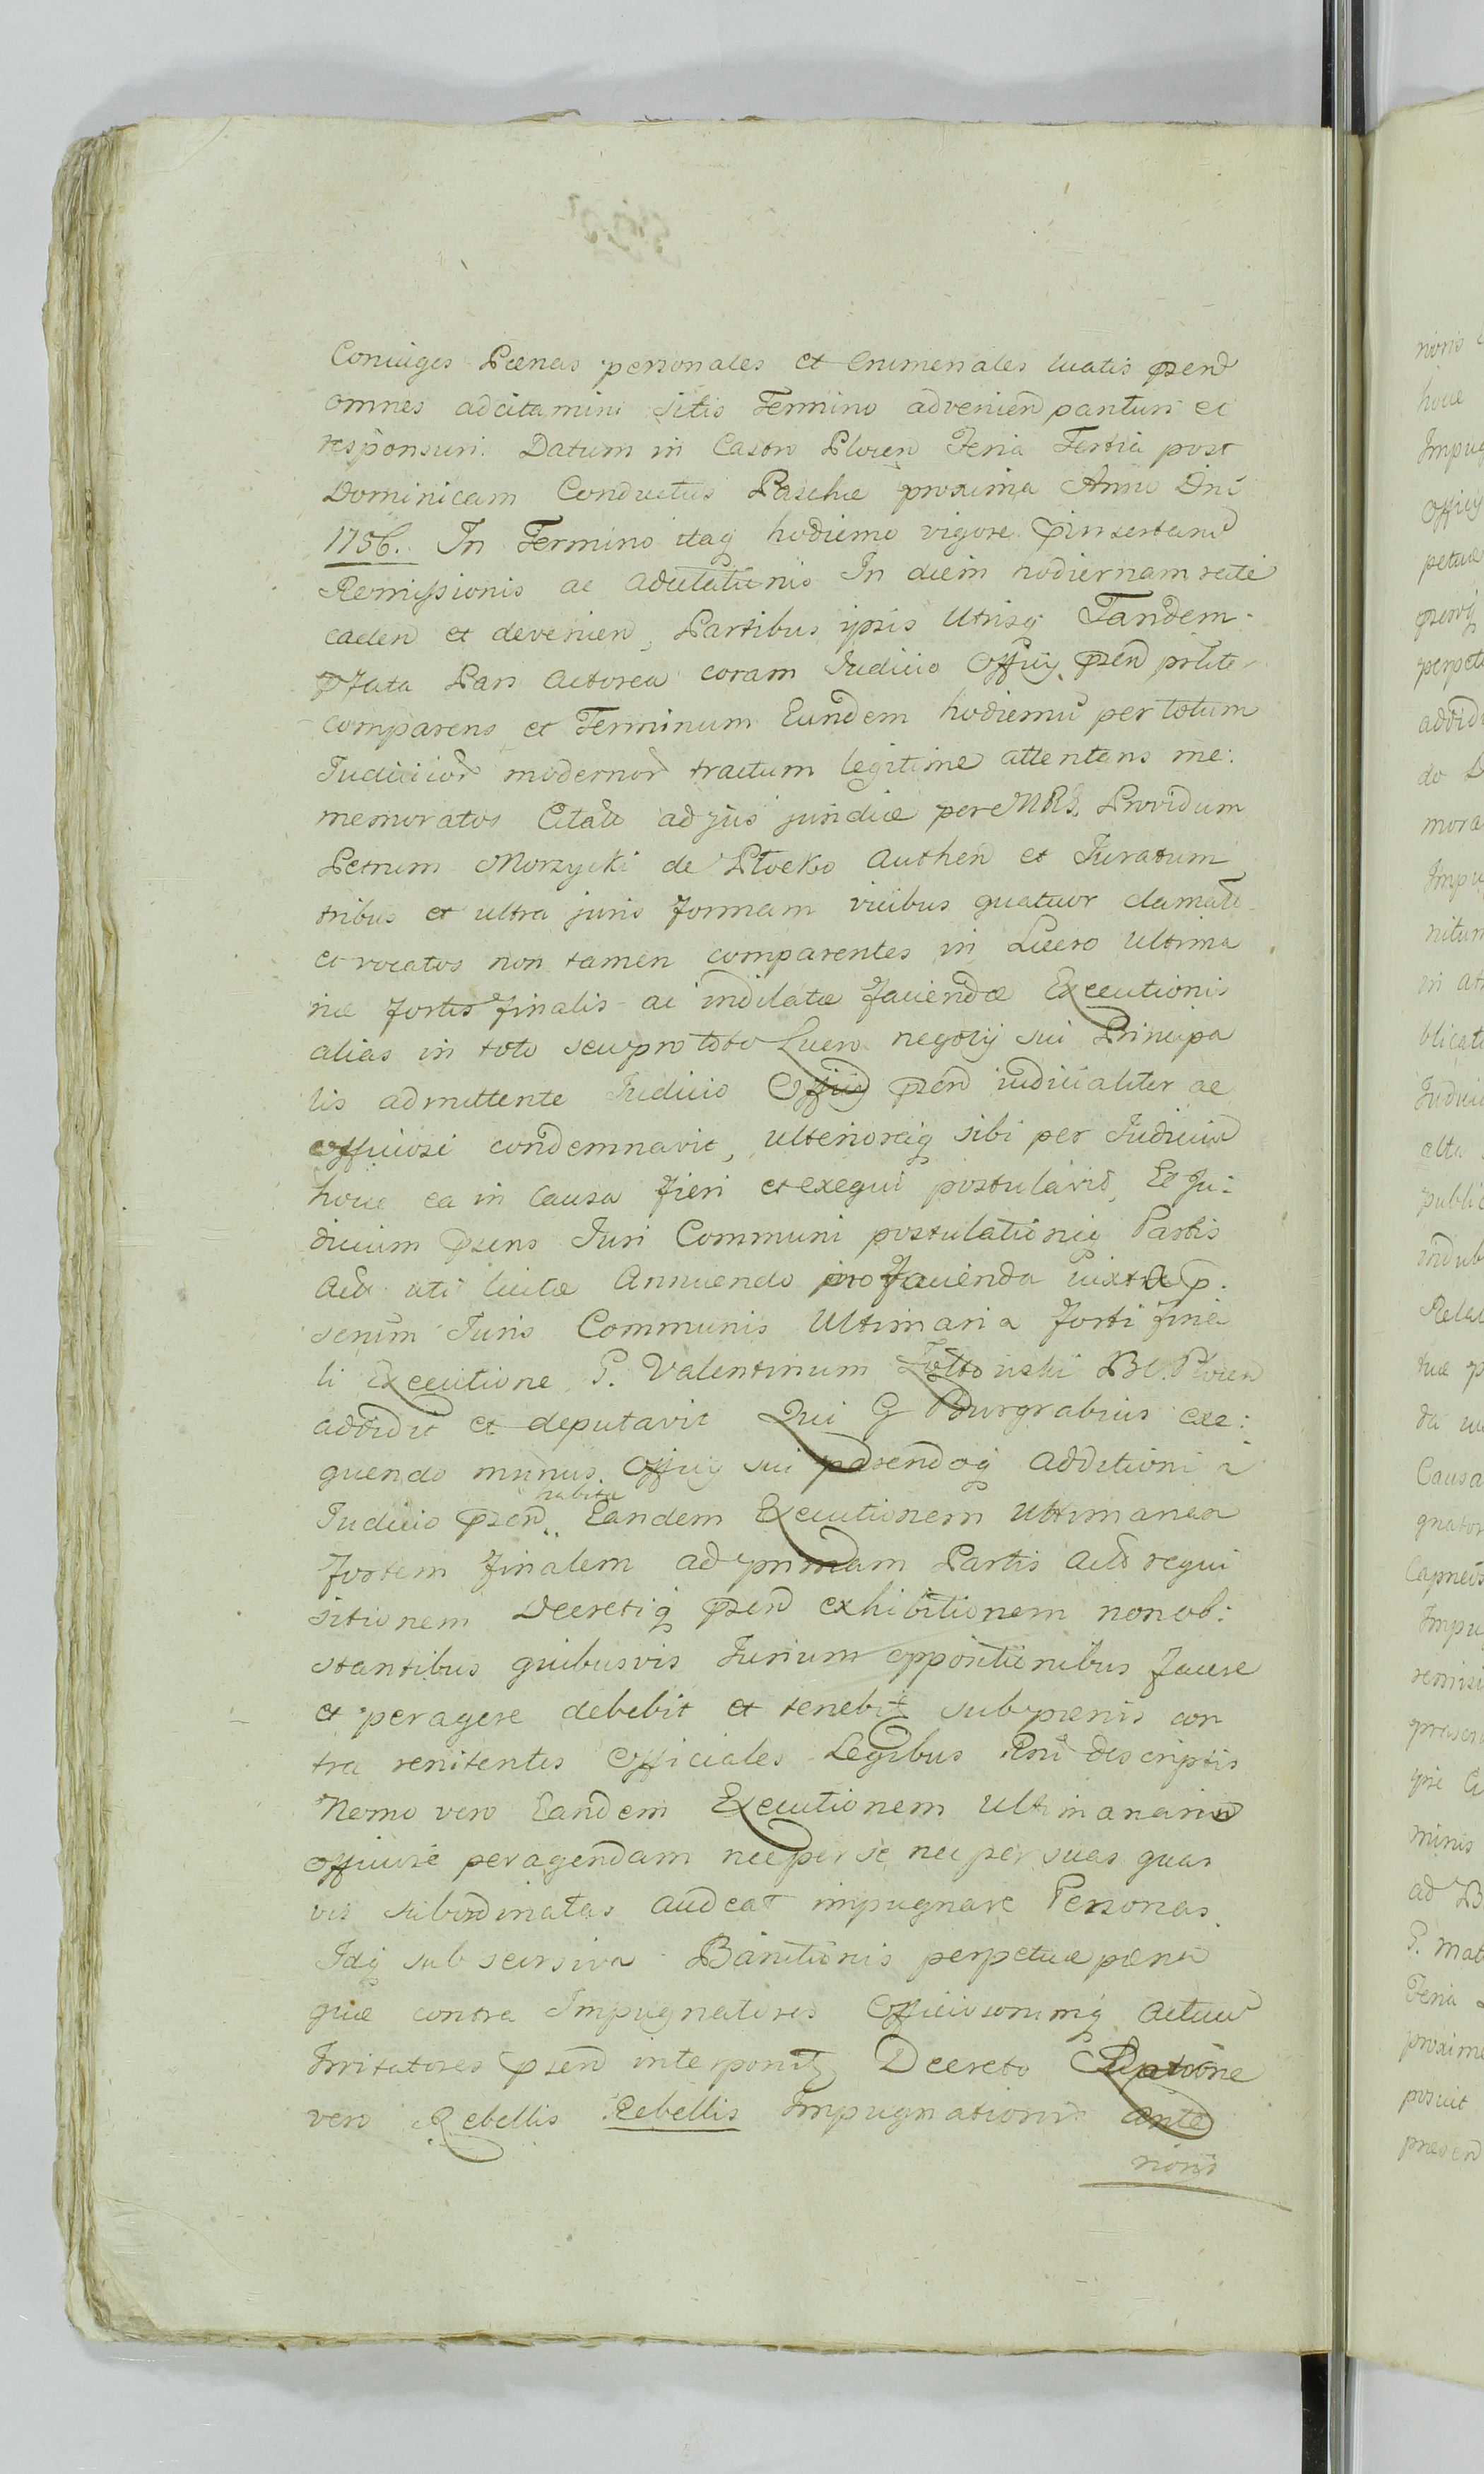 Coniuges Pænas personales et Crimenales luatis præsen
omnes adcitamini sitis Termino advenien parituri et
responsuri. Datum in Castro Plocen Feria Tertia post
Dominicam Conductus Paschæ proxima Anno Dni
1756. In Termino itaq hodierno vigore præinsertarum
Remissionis ac adcitationis In diem hodiernam recte
caden et devenien, Partibus ipsis Utrisq Tandem
præfata Pars Actorea coram Judicio Officij præsen prlter
comparens et Terminum Eundem hodiernu per totum
Judicior modernor tractum legitime attentans me:
memoratos Citatos ad jus juridice per MRJ. Providum
Petrum Morzycki de Płocko Authen et Juratum
tribus et ultra juris formam vicibus quatuor clamatos
et vocatos non tamen comparentes in Lucro Ultima
riæ fortis finalis ac indilatæ faciendæ Executionis
alias in toto seu pro toto Lucro negotij sui Principa
lis admittente Judicio Officij præsen iudicialiter ac
officiose condemnavit, ulterioreq sibi per Judicium
hocce ea in Causa fieri et exequi postulavit, Et Ju:
dicium præsens Juri Communi postulationiq Partis
Act uti licitæ Annuendo pro facienda iuxta præ
senum Juris Communis Ultimaria forti fina
li Executione G. Valentinum BC. Plocen
addidit et deputavit Qui G Burgrabius exe:
quendo munus Officij sui Additioni a
Judicio præsen habitæ Eandem Executionem Ultimariam
fortem finalem ad primam Partis Act requi
sitionem Decretiq præsen exhibitionem non ob:
stantibus quibusvis Jurium oppositionibus facere
et peragere debebit et tenebitur sub pænis con
tra renitentes Officiales Legibus Rni descriptis
Nemo vero Eandem Executionem Ultimariam
officiose peragendam nec per se nec per suas quas
vis subordinatas audeat impugnare Personas
Idq sub scursiva Banitionis perpetuæ pæna
quæ contra Impugnatores Officiosorumq Actuum
Irritatores præsen interponitur Decreto Ratione
vero Rebellis Rebellis Impugnationis ante
rioris